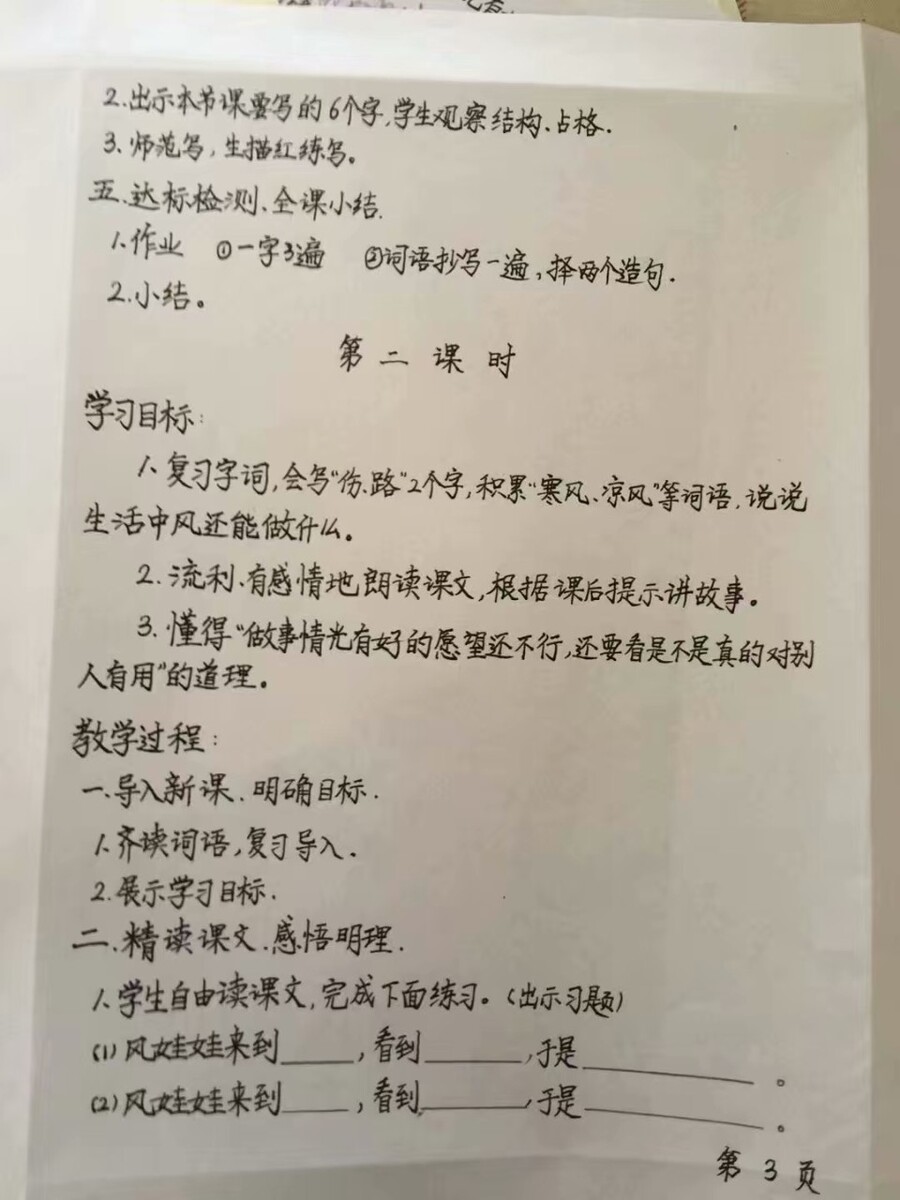 2.出示本节课要写的6个字,学生观察结构、占格.
3.师范写,生描红练写。
五.达标检测、全课小结.
1.作业 ①一字3遍 ②词语抄写一遍,择两个造句.
2.小结。
第二课时
学习目标:
1.复习字词,会写“伤、路”2个字,积累“寒风、凉风”等词语,说说
生活中风还能做什么。
2.流利、有感情地朗读课文,根据课后提示讲故事。
3.懂得“做事情光有好的愿望还不行,还要看是不是真的对别
人有用”的道理。
教学过程:
一.导入新课.明确目标.
1.齐读词语,复习导入.
2.展示学习目标.
二.精读课文.感悟明理.
1.学生自由读课文,完成下面练习。(出示习题)
(1)风娃娃来到_____,看到_______,于是____________。
(2)风娃娃来到_____,看到_______,于是____________。
第3页